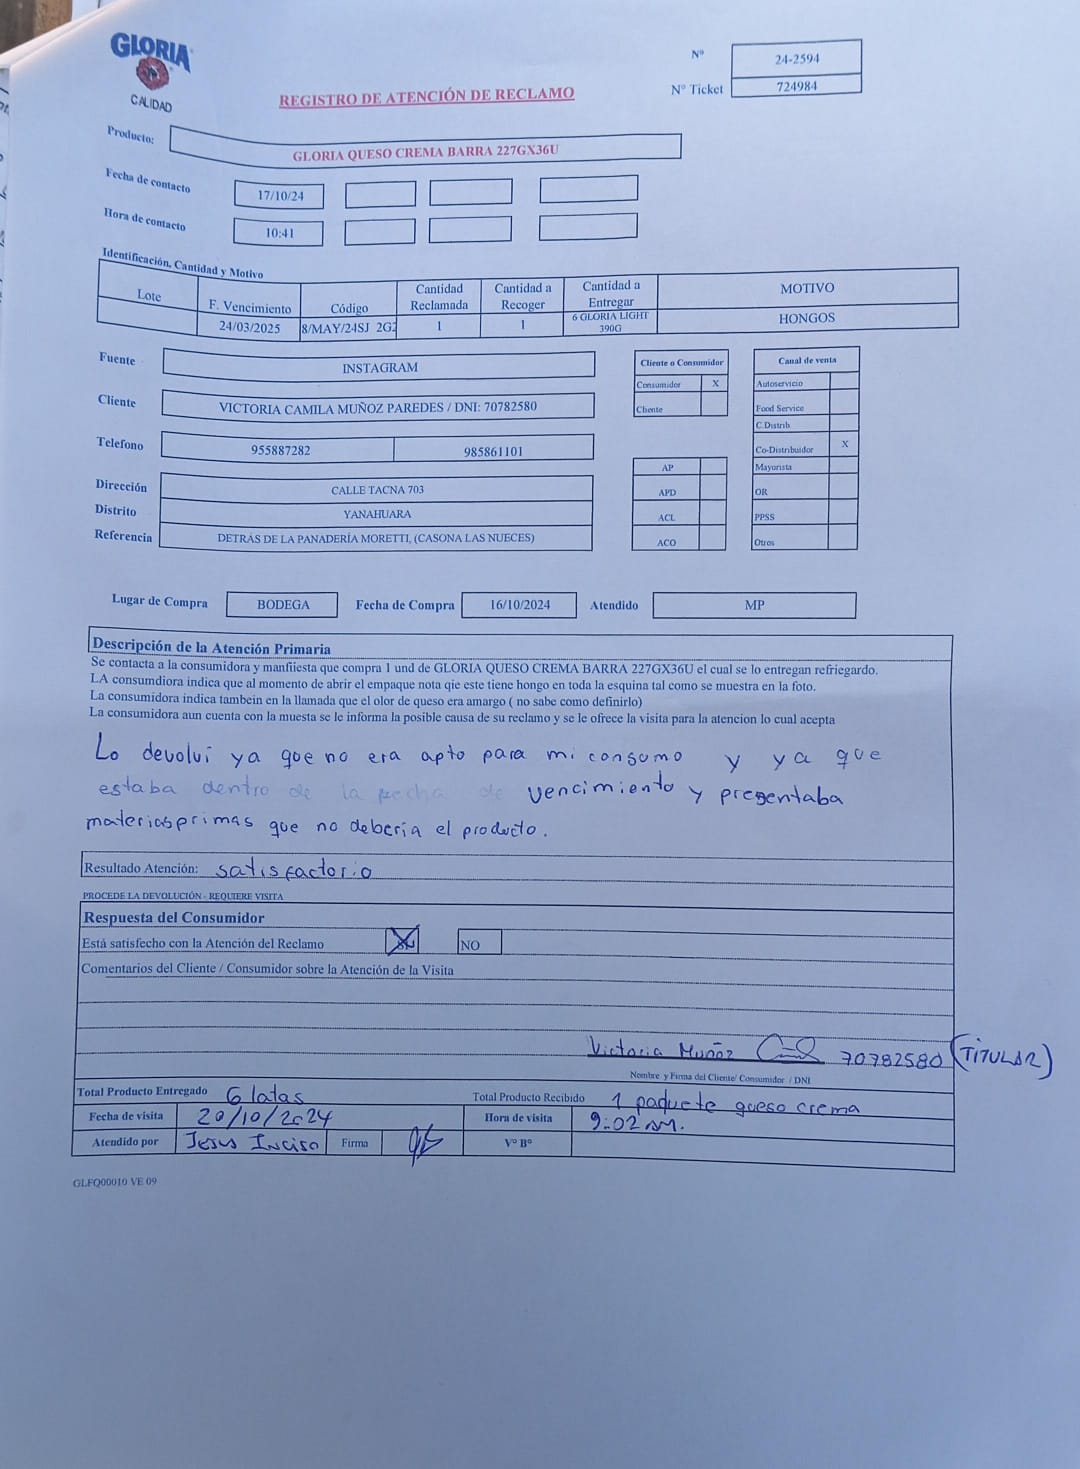 GLORIA
CALIDAD
Nº 24-2594
Nº Ticket 724984
REGISTRO DE ATENCIÓN DE RECLAMO
Producto: GLORIA QUESO CREMA BARRA 227GX36U
Fecha de contacto 17/10/24
Hora de contacto 10:41
Identificación, Cantidad y Motivo
Lote F. Vencimiento Código Cantidad Reclamada Cantidad a Recoger Cantidad a Entregar MOTIVO
24/03/2025 8/MAY/24SJ 2G2 1 1 6 GLORIA LIGHT 390G HONGOS
Fuente INSTAGRAM
Cliente VICTORIA CAMILA MUÑOZ PAREDES / DNI: 70782580
Telefono 955887282 985861101
Dirección CALLE TACNA 703
Distrito YANAHUARA
Referencia DETRÁS DE LA PANADERÍA MORETTI, (CASONA LAS NUECES)
Cliente o Consumidor
Consumidor X
Cliente
AP
APD
ACL
ACO
Canal de venta
Autoservicio
Food Service
C.Distrib.
Co-Distribuidor X
Mayorista
OR
PPSS
Otros
Lugar de Compra BODEGA Fecha de Compra 16/10/2024 Atendido MP
Descripción de la Atención Primaria
Se contacta a la consumidora y manfiiesta que compra 1 und de GLORIA QUESO CREMA BARRA 227GX36U el cual se lo entregan refriegardo.
LA consumdiora indica que al momento de abrir el empaque nota qie este tiene hongo en toda la esquina tal como se muestra en la foto.
La consumidora indica tambein en la llamada que el olor de queso era amargo ( no sabe como definirlo)
La consumidora aun cuenta con la muesta se le informa la posible causa de su reclamo y se le ofrece la visita para la atencion lo cual acepta
Lo devolví ya que no era apto para mi consumo y ya que
estaba dentro de la fecha de vencimiento y presentaba
materias primas que no debería el producto.
Resultado Atención: satisfactorio
PROCEDE LA DEVOLUCIÓN - REQUIERE VISITA
Respuesta del Consumidor
Está satisfecho con la Atención del Reclamo SI NO
Comentarios del Cliente / Consumidor sobre la Atención de la Visita
Victoria Muñoz 70782580 (TITULAR)
Nombre y Firma del Cliente/ Consumidor / DNI
Total Producto Entregado 6 latas Total Producto Recibido 1 paquete queso crema
Fecha de visita 20/10/2024 Hora de visita 9:02 AM.
Atendido por Jesus Inciso Firma Vº Bº
GLFQ00010 VE 09